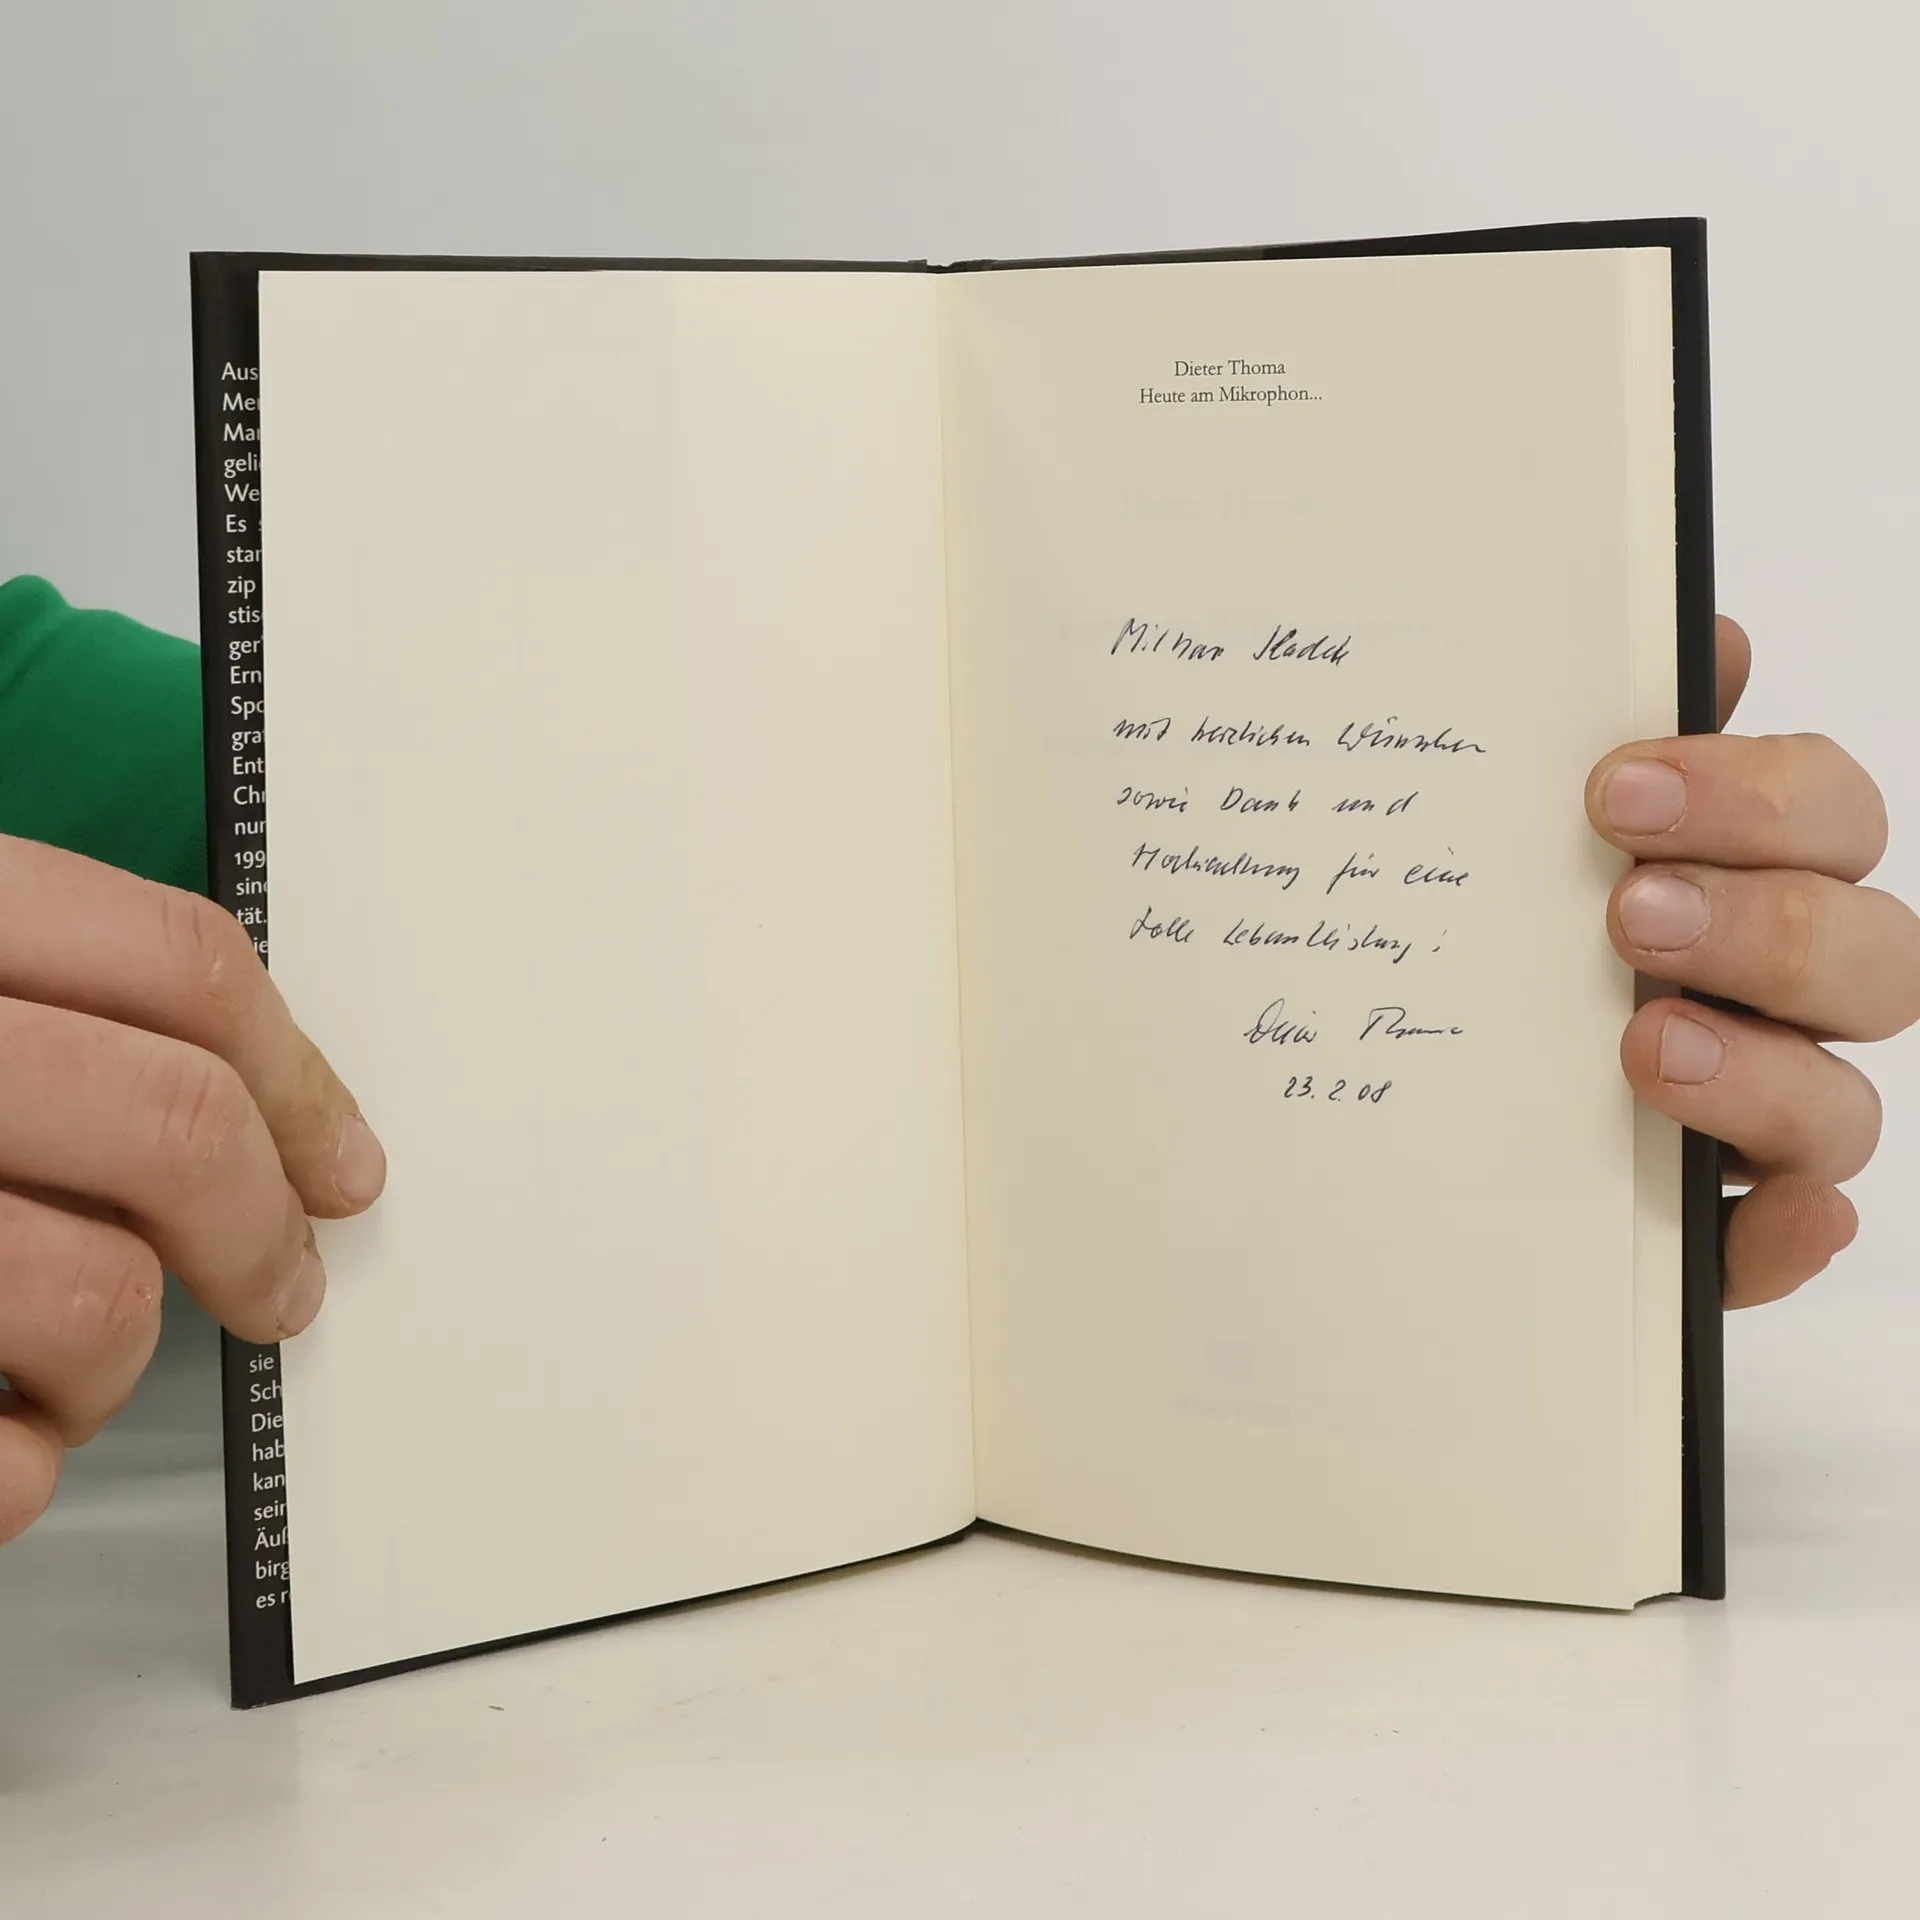 Aus
Mer
Mar
geli
We
Es
star
zip
stis
ger
Ern
Spo
gra
Ent
Chr
nur
199
sind
tät.
ie
sie
Sch
Die
hab
kan
sein
Äuß
birg
es r
Dieter Thoma
Heute am Mikrophon...
mit herzlichen Wünschen
sowie Dank und
Hochachtung für eine
tolle Lebensleistung!
Dieter Thoma
23. 2. 08